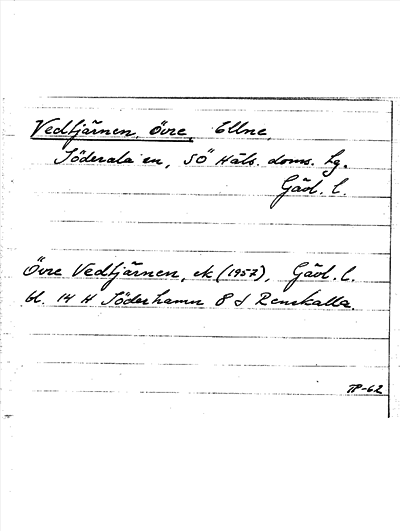 Vedtjärnen, Övre, Ellne,
Söderala sn, SÖ Häls. doms. hg.
Gävl. l.
Övre Vedtjärnen, ek (1957), Gävl. l.
bl. 14 H Söderhamn 8 d Renskalla.
TP-62